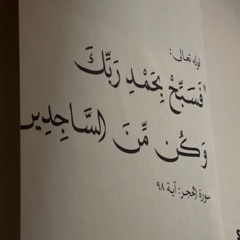 قوله تعالى:
"فَسَبِّحْ بِحَمْدِ رَبِّكَ
وَكُن مِّنَ السَّاجِدِين
سورة الحجر: آية ٩٨